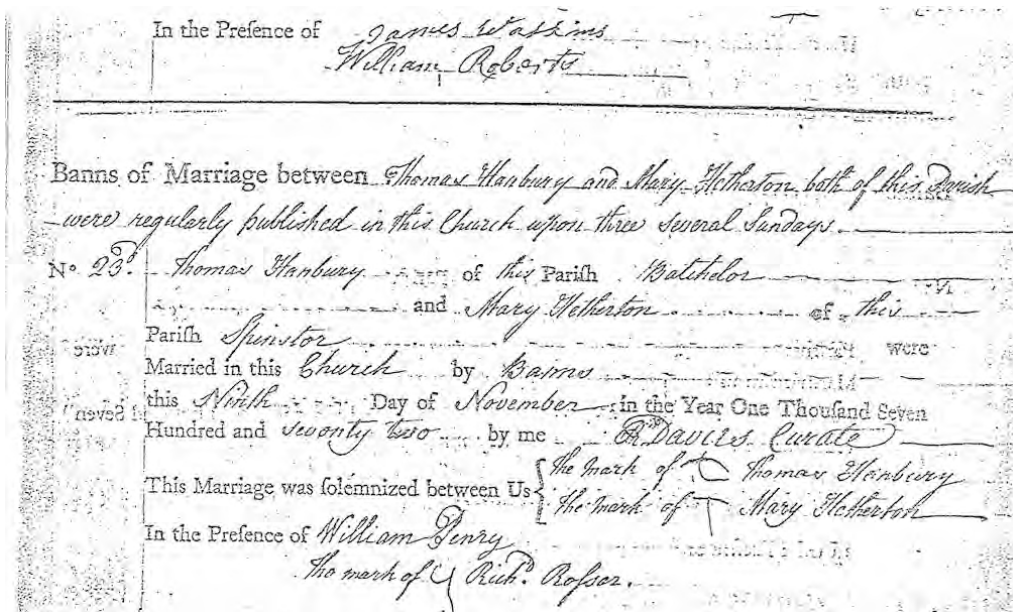 In the Preſence of James Watkins
William Roberts
Banns of Marriage between Thomas Hanbury and Mary Hetherton both of this Parish
were regularly published in this Church upon three several Sundays
No 23. Thomas Hanbury of this Pariſh Batchelor
and Mary Hetherton of this
Pariſh Spinstor were
Married in this Church by Banns
this Ninth Day of November in the Year One Thouſand Seven
Hundred and seventy two by me Davies Curate
This Marriage was ſolemnized between Us { the mark of Thomas Hanbury
the mark of Mary Hetherton
In the Preſence of William Penry
the mark of Richd. Rosser.